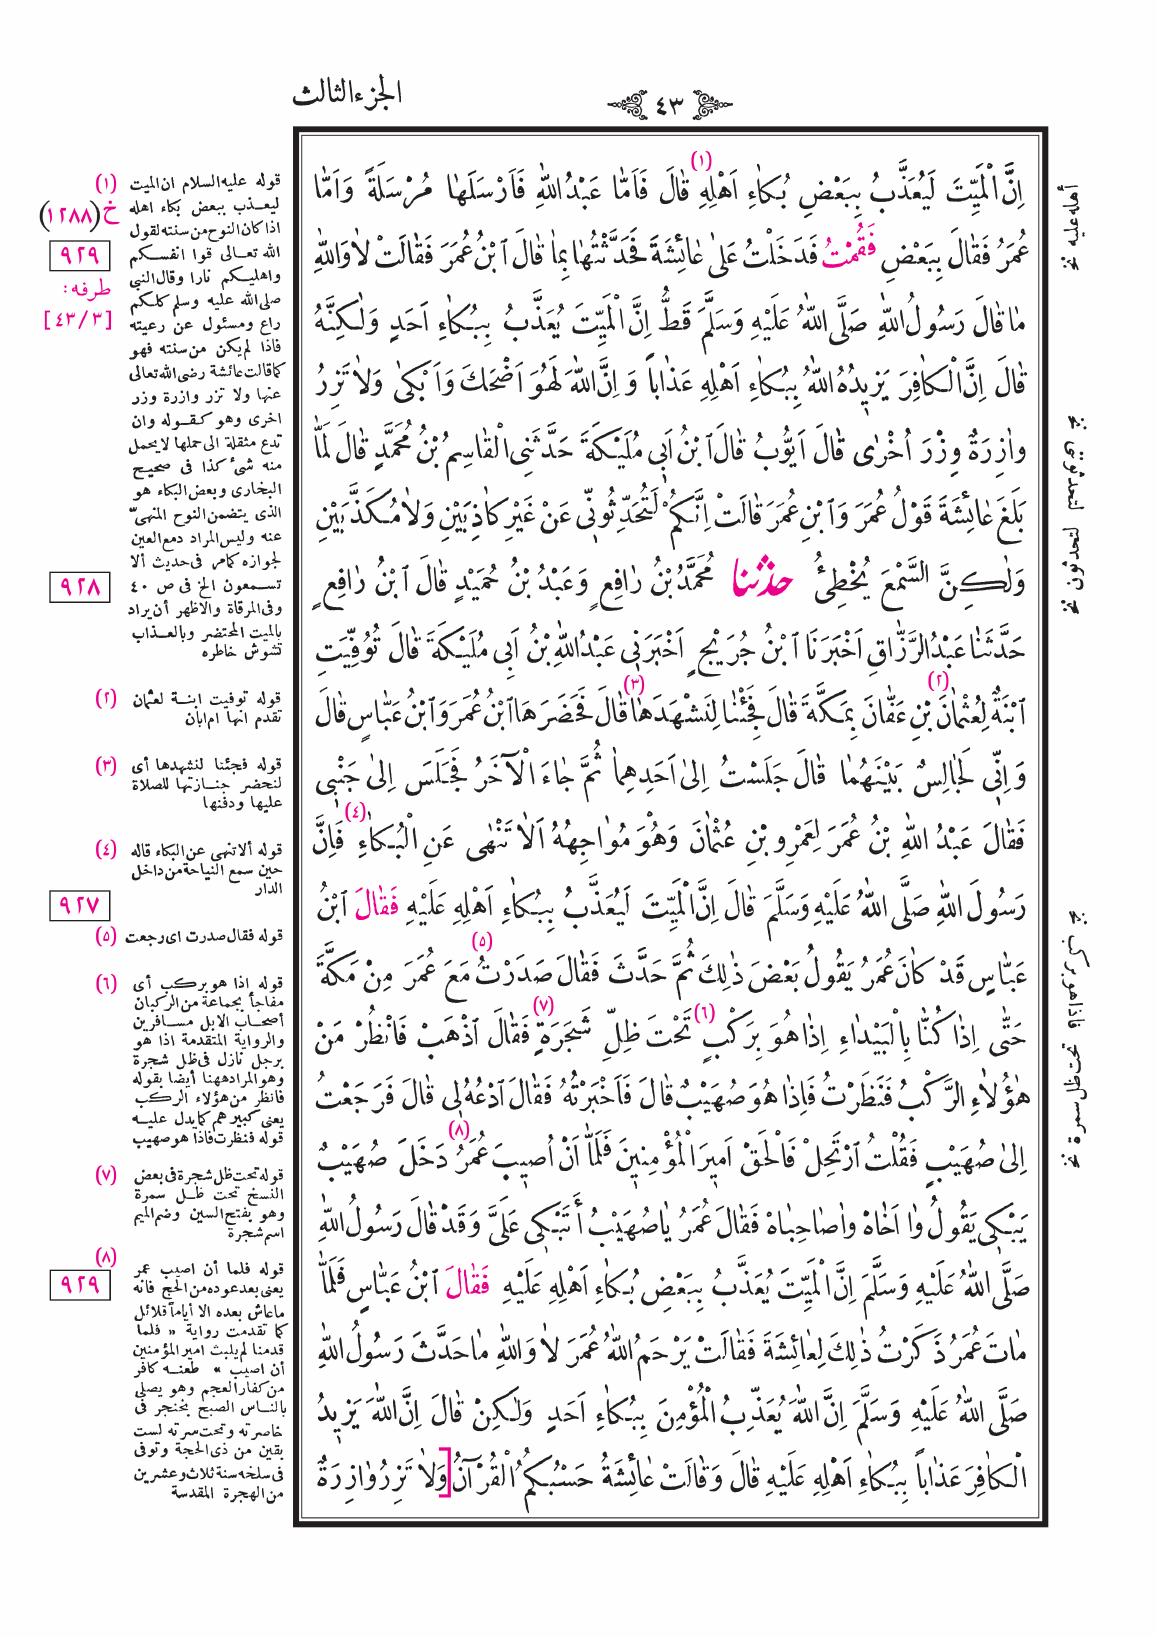 الجزء الثالث
٤٣
اِنَّ الْمَيِّتَ لَيُعَذَّبُ بِبَعْضِ بُكَاءِ اَهْلِهِ (١) قَالَ فَاَمَّا عَبْدُ اللهِ فَاَرْسَلَهَا مُرْسَلَةً وَاَمَّا
عُمَرُ فَقَالَ بِبَعْضِ فَقُمْتُ فَدَخَلْتُ عَلٰى عَائِشَةَ فَحَدَّثْتُهَا بِمَا قَالَ ابْنُ عُمَرَ فَقَالَتْ لَا وَاللهِ
مَا قَالَ رَسُولُ اللهِ صَلَّى اللهُ عَلَيْهِ وَسَلَّمَ قَطُّ اِنَّ الْمَيِّتَ يُعَذَّبُ بِبُكَاءِ اَحَدٍ وَلٰكِنَّهُ
قَالَ اِنَّ الْكَافِرَ يَزِيدُهُ اللهُ بِبُكَاءِ اَهْلِهِ عَذَاباً وَاِنَّ اللهَ لَهُوَ اَضْحَكَ وَاَبْكٰى وَلَا تَزِرُ
وَازِرَةٌ وِزْرَ اُخْرٰى قَالَ اَيُّوبُ قَالَ ابْنُ اَبِي مُلَيْكَةَ حَدَّثَنِي الْقَاسِمُ بْنُ مُحَمَّدٍ قَالَ لَمَّا
بَلَغَ عَائِشَةَ قَوْلُ عُمَرَ وَابْنِ عُمَرَ قَالَتْ اِنَّكُمْ لَتُحَدِّثُونِّي عَنْ غَيْرِ كَاذِبَيْنِ وَلَا مُكَذَّبَيْنِ
وَلٰكِنَّ السَّمْعَ يُخْطِئُ حدثنا مُحَمَّدُ بْنُ رَافِعٍ وَعَبْدُ بْنُ حُمَيْدٍ قَالَ ابْنُ رَافِعٍ
حَدَّثَنَا عَبْدُ الرَّزَّاقِ اَخْبَرَنَا ابْنُ جُرَيْجٍ اَخْبَرَنِي عَبْدُ اللهِ بْنُ اَبِي مُلَيْكَةَ قَالَ تُوُفِّيَتِ
ابْنَةٌ لِعُثْمَانَ (٢) بْنِ عَفَّانَ بِمَكَّةَ قَالَ فَجِئْنَا لِنَشْهَدَهَا (٣) قَالَ فَحَضَرَهَا ابْنُ عُمَرَ وَابْنُ عَبَّاسٍ قَالَ
وَاِنِّي لَجَالِسٌ بَيْنَهُمَا قَالَ جَلَسْتُ اِلٰى اَحَدِهِمَا ثُمَّ جَاءَ الْآخَرُ فَجَلَسَ اِلٰى جَنْبِي
فَقَالَ عَبْدُ اللهِ بْنُ عُمَرَ لِعَمْرِو بْنِ عُثْمَانَ وَهُوَ مُوَاجِهُهُ اَلَا تَنْهٰى عَنِ الْبُكَاءِ (٤) فَاِنَّ
رَسُولَ اللهِ صَلَّى اللهُ عَلَيْهِ وَسَلَّمَ قَالَ اِنَّ الْمَيِّتَ لَيُعَذَّبُ بِبُكَاءِ اَهْلِهِ عَلَيْهِ فَقَالَ ابْنُ
عَبَّاسٍ قَدْ كَانَ عُمَرُ يَقُولُ بَعْضَ ذٰلِكَ ثُمَّ حَدَّثَ فَقَالَ صَدَرْتُ (٥) مَعَ عُمَرَ مِنْ مَكَّةَ
حَتّٰى اِذَا كُنَّا بِالْبَيْدَاءِ اِذَا هُوَ بِرَكْبٍ (٦) تَحْتَ ظِلِّ شَجَرَةٍ (٧) فَقَالَ اذْهَبْ فَانْظُرْ مَنْ
هٰؤُلَاءِ الرَّكْبُ فَنَظَرْتُ فَاِذَا هُوَ صُهَيْبٌ قَالَ فَاَخْبَرْتُهُ فَقَالَ ادْعُهُ لِي قَالَ فَرَجَعْتُ
اِلٰى صُهَيْبٍ فَقُلْتُ ارْتَحِلْ فَالْحَقْ اَمِيرَ الْمُؤْمِنِينَ فَلَمَّا اَنْ اُصِيبَ عُمَرُ (٨) دَخَلَ صُهَيْبٌ
يَبْكِي يَقُولُ وَا اَخَاهْ وَا صَاحِبَاهْ فَقَالَ عُمَرُ يَا صُهَيْبُ أَتَبْكِي عَلَيَّ وَقَدْ قَالَ رَسُولُ اللهِ
صَلَّى اللهُ عَلَيْهِ وَسَلَّمَ اِنَّ الْمَيِّتَ يُعَذَّبُ بِبَعْضِ بُكَاءِ اَهْلِهِ عَلَيْهِ فَقَالَ ابْنُ عَبَّاسٍ فَلَمَّا
مَاتَ عُمَرُ ذَكَرْتُ ذٰلِكَ لِعَائِشَةَ فَقَالَتْ يَرْحَمُ اللهُ عُمَرَ لَا وَاللهِ مَا حَدَّثَ رَسُولُ اللهِ
صَلَّى اللهُ عَلَيْهِ وَسَلَّمَ اِنَّ اللهَ يُعَذِّبُ الْمُؤْمِنَ بِبُكَاءِ اَحَدٍ وَلٰكِنْ قَالَ اِنَّ اللهَ يَزِيدُ
الْكَافِرَ عَذَاباً بِبُكَاءِ اَهْلِهِ عَلَيْهِ قَالَ وَقَالَتْ عَائِشَةُ حَسْبُكُمُ الْقُرْآنُ [وَلَا تَزِرُ وَازِرَةٌ
أهله عليه نخ
لتحدثون لتحدثوننى نخ
فاذا هو بركب نخ
تحت ظل سمرة نخ
(١) قوله عليه السلام ان الميت
ليعذب ببعض بكاء اهله
اذا كان النوح من سنته لقول
الله تعالى قوا انفسكم
واهليكم نارا وقال النبى
صلى الله عليه وسلم كلكم
راع ومسئول عن رعيته
فاذا لم يكن من سنته فهو
كما قالت عائشة رضى الله تعالى
عنها ولا تزر وازرة وزر
اخرى وهو كقوله وان
تدع مثقلة الى حملها لا يحمل
منه شئ كذا فى صحيح
البخارى وبعض البكاء هو
الذى يتضمن النوح المنهىّ
عنه وليس المراد دمع العين
لجوازه كما مر فى حديث ألا
تسمعون الخ فى ص ٤٠
وفى المرقاة والاظهر أن يراد
بالميت المحتضر وبالعذاب
تشوش خاطره
خ (١٢٨٨)
٩٢٩
طرفه:
[٤٣/٣]
٩٢٨
(٢) قوله توفيت ابنة لعثمان
تقدم انها ام ابان
(٣) قوله فجئنا لنشهدها أى
لنحضر جنازتها للصلاة
عليها ودفنها
(٤) قوله ألا تنهى عن البكاء قاله
حين سمع النياحة من داخل
الدار
٩٢٧
(٥) قوله فقال صدرت اى رجعت
(٦) قوله اذا هو بركب أى
مفاجأ بجماعة من الركبان
أصحاب الابل مسافرين
والرواية المتقدمة اذا هو
برجل نازل فى ظل شجرة
وهو المراد ههنا أيضا بقوله
فانظر من هؤلاء الركب
يعنى كبيرهم كما يدل عليه
قوله فنظرت فاذا هو صهيب
(٧) قوله تحت ظل شجرة فى بعض
النسخ تحت ظل سمرة
وهو بفتح السين وضم الميم
اسم شجرة
(٨) قوله فلما أن اصيب عمر
يعنى بعد عوده من الحج فانه
ما عاش بعده الا أياما قلائل
كما تقدمت رواية « فلما
قدمنا لم يلبث امير المؤمنين
أن اصيب » طعنه كافر
من كفار العجم وهو يصلى
بالناس الصبح بخنجر فى
خاصرته وتحت سرته لست
بقين من ذى الحجة وتوفى
فى سلخه سنة ثلاث وعشرين
من الهجرة المقدسة
٩٢٩